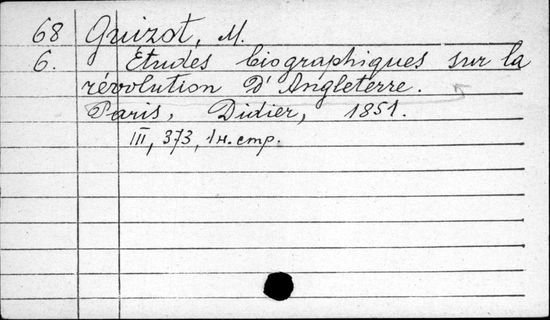 68 Guizot, M.
6. Études biographiques sur la
révolution d'Angleterre.
Paris, Didier, 1851.
III, 373, 1 н. стр.